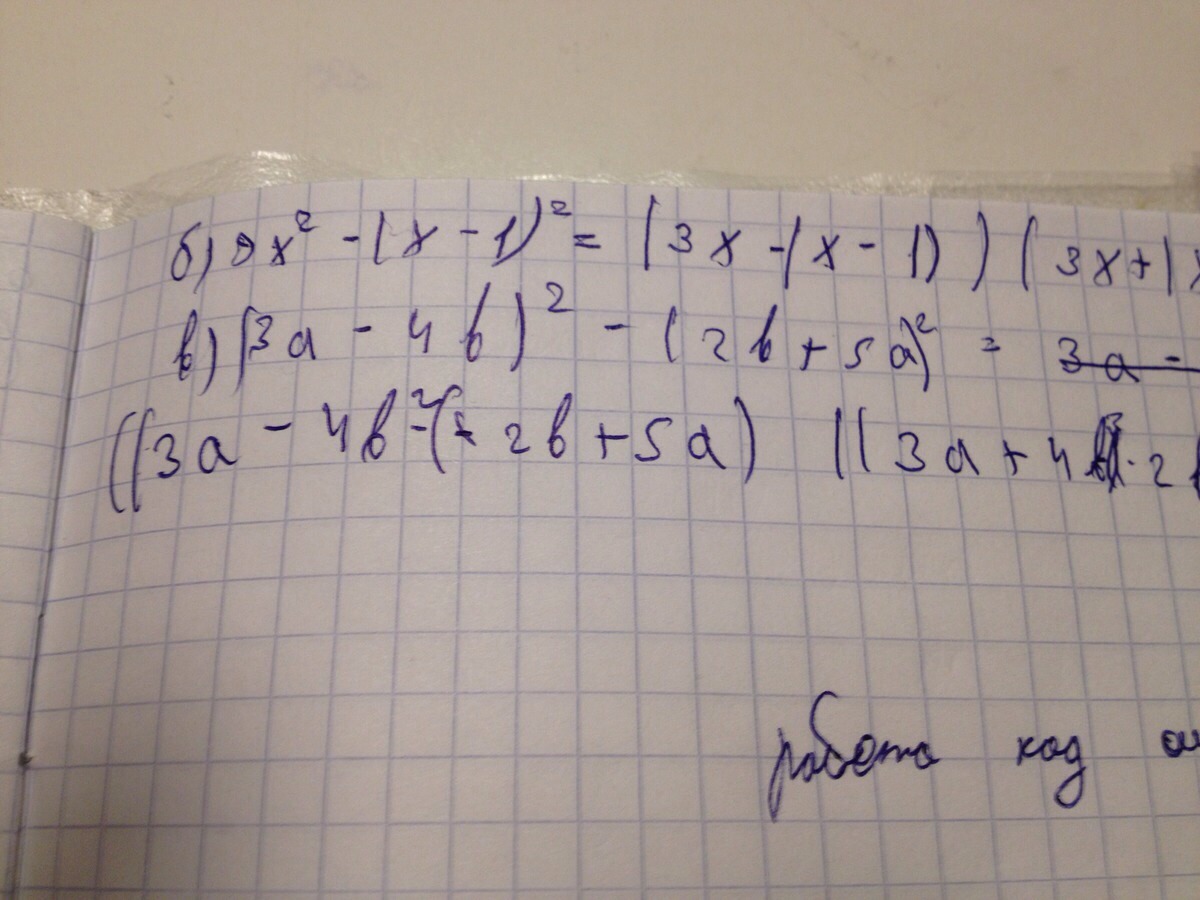 б) 9x² - (x - 1)² = (3x - (x - 1)) (3x + (x
в) (3a - 4b)² - (2b + 5a)² = 3a -
((3a - 4b - (2b + 5a) ((3a + 4 2b
работа над